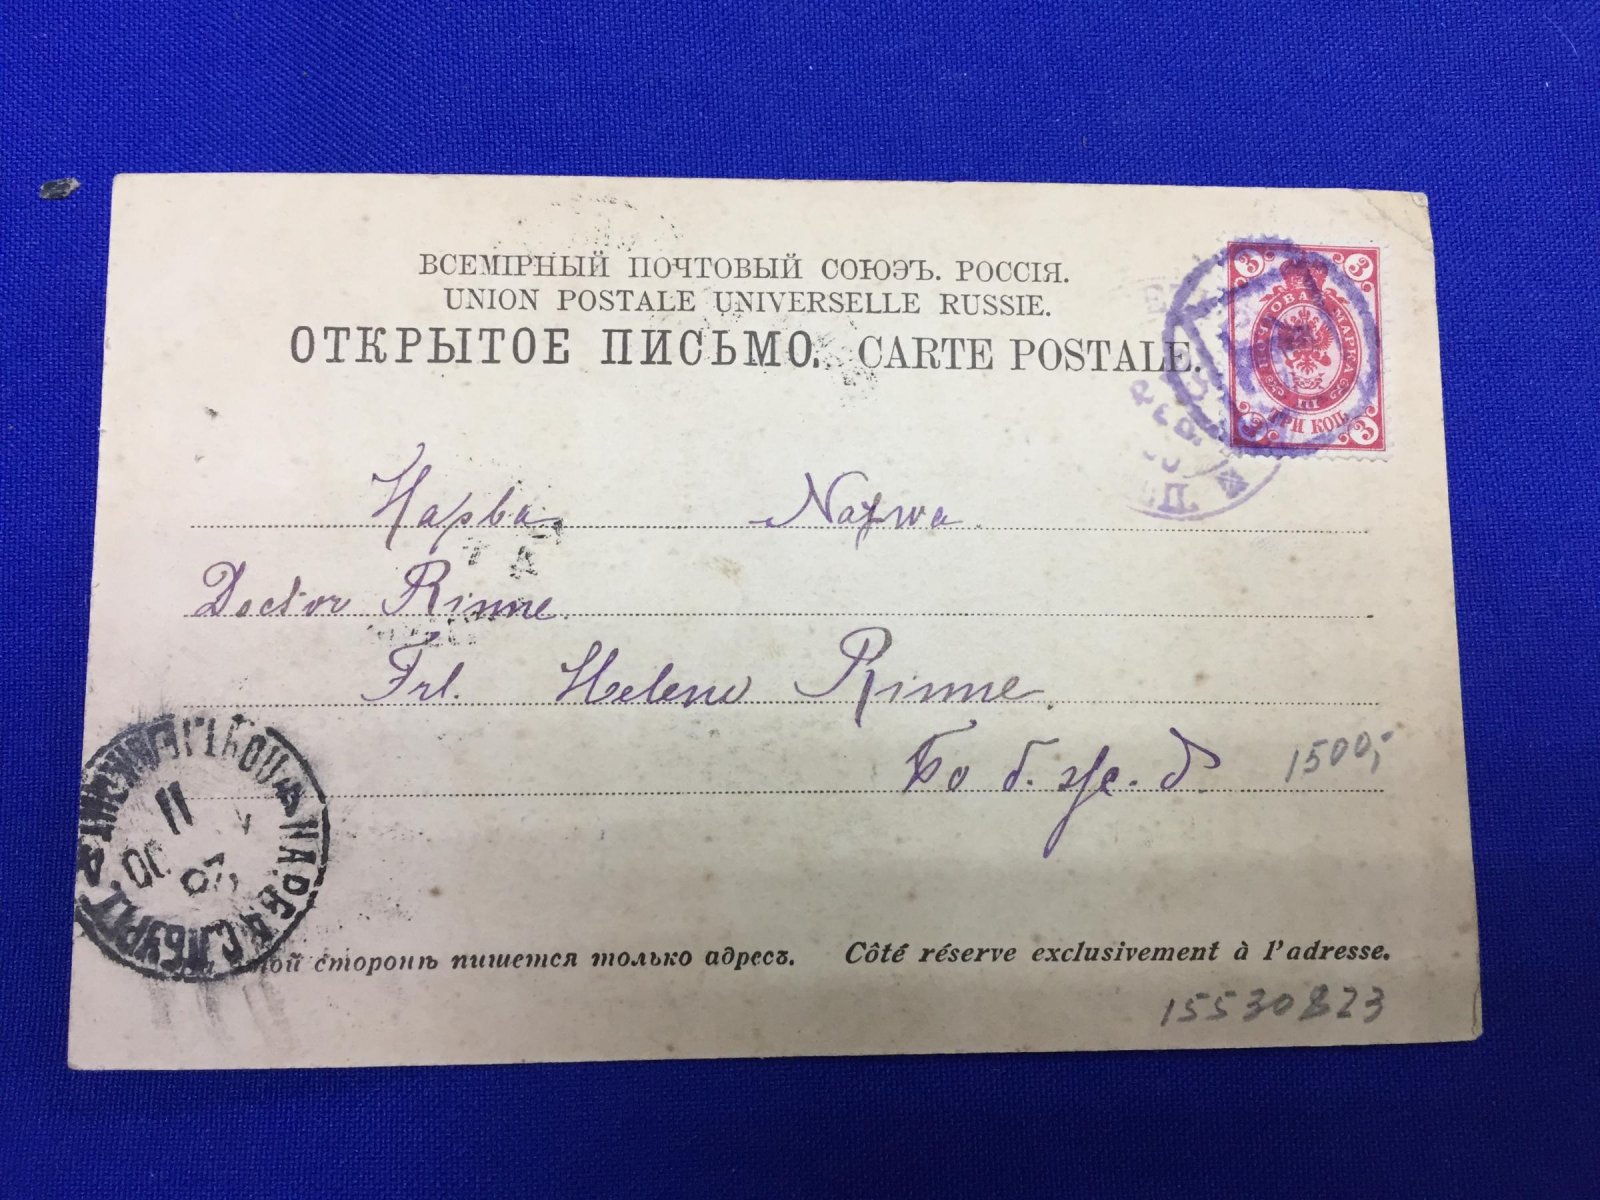 ВСЕМІРНЫЙ ПОЧТОВЫЙ СОЮЭЪ. РОССІЯ.
UNION POSTALE UNIVERSELLE RUSSIE.
ОТКРЫТОЕ ПИСЬМО. CARTE POSTALE.
3 3
ПОЧТОВАЯ МАРКА
ТРИ КОП.
3 3
Нарва Narwa.
Doctor Rinne.
Frl. Helene Rinne.
1500,-
НАРВА С.ПБУРГ.
11
стороне пишется только адресъ. Côté réserve exclusivement à l'adresse.
15530823